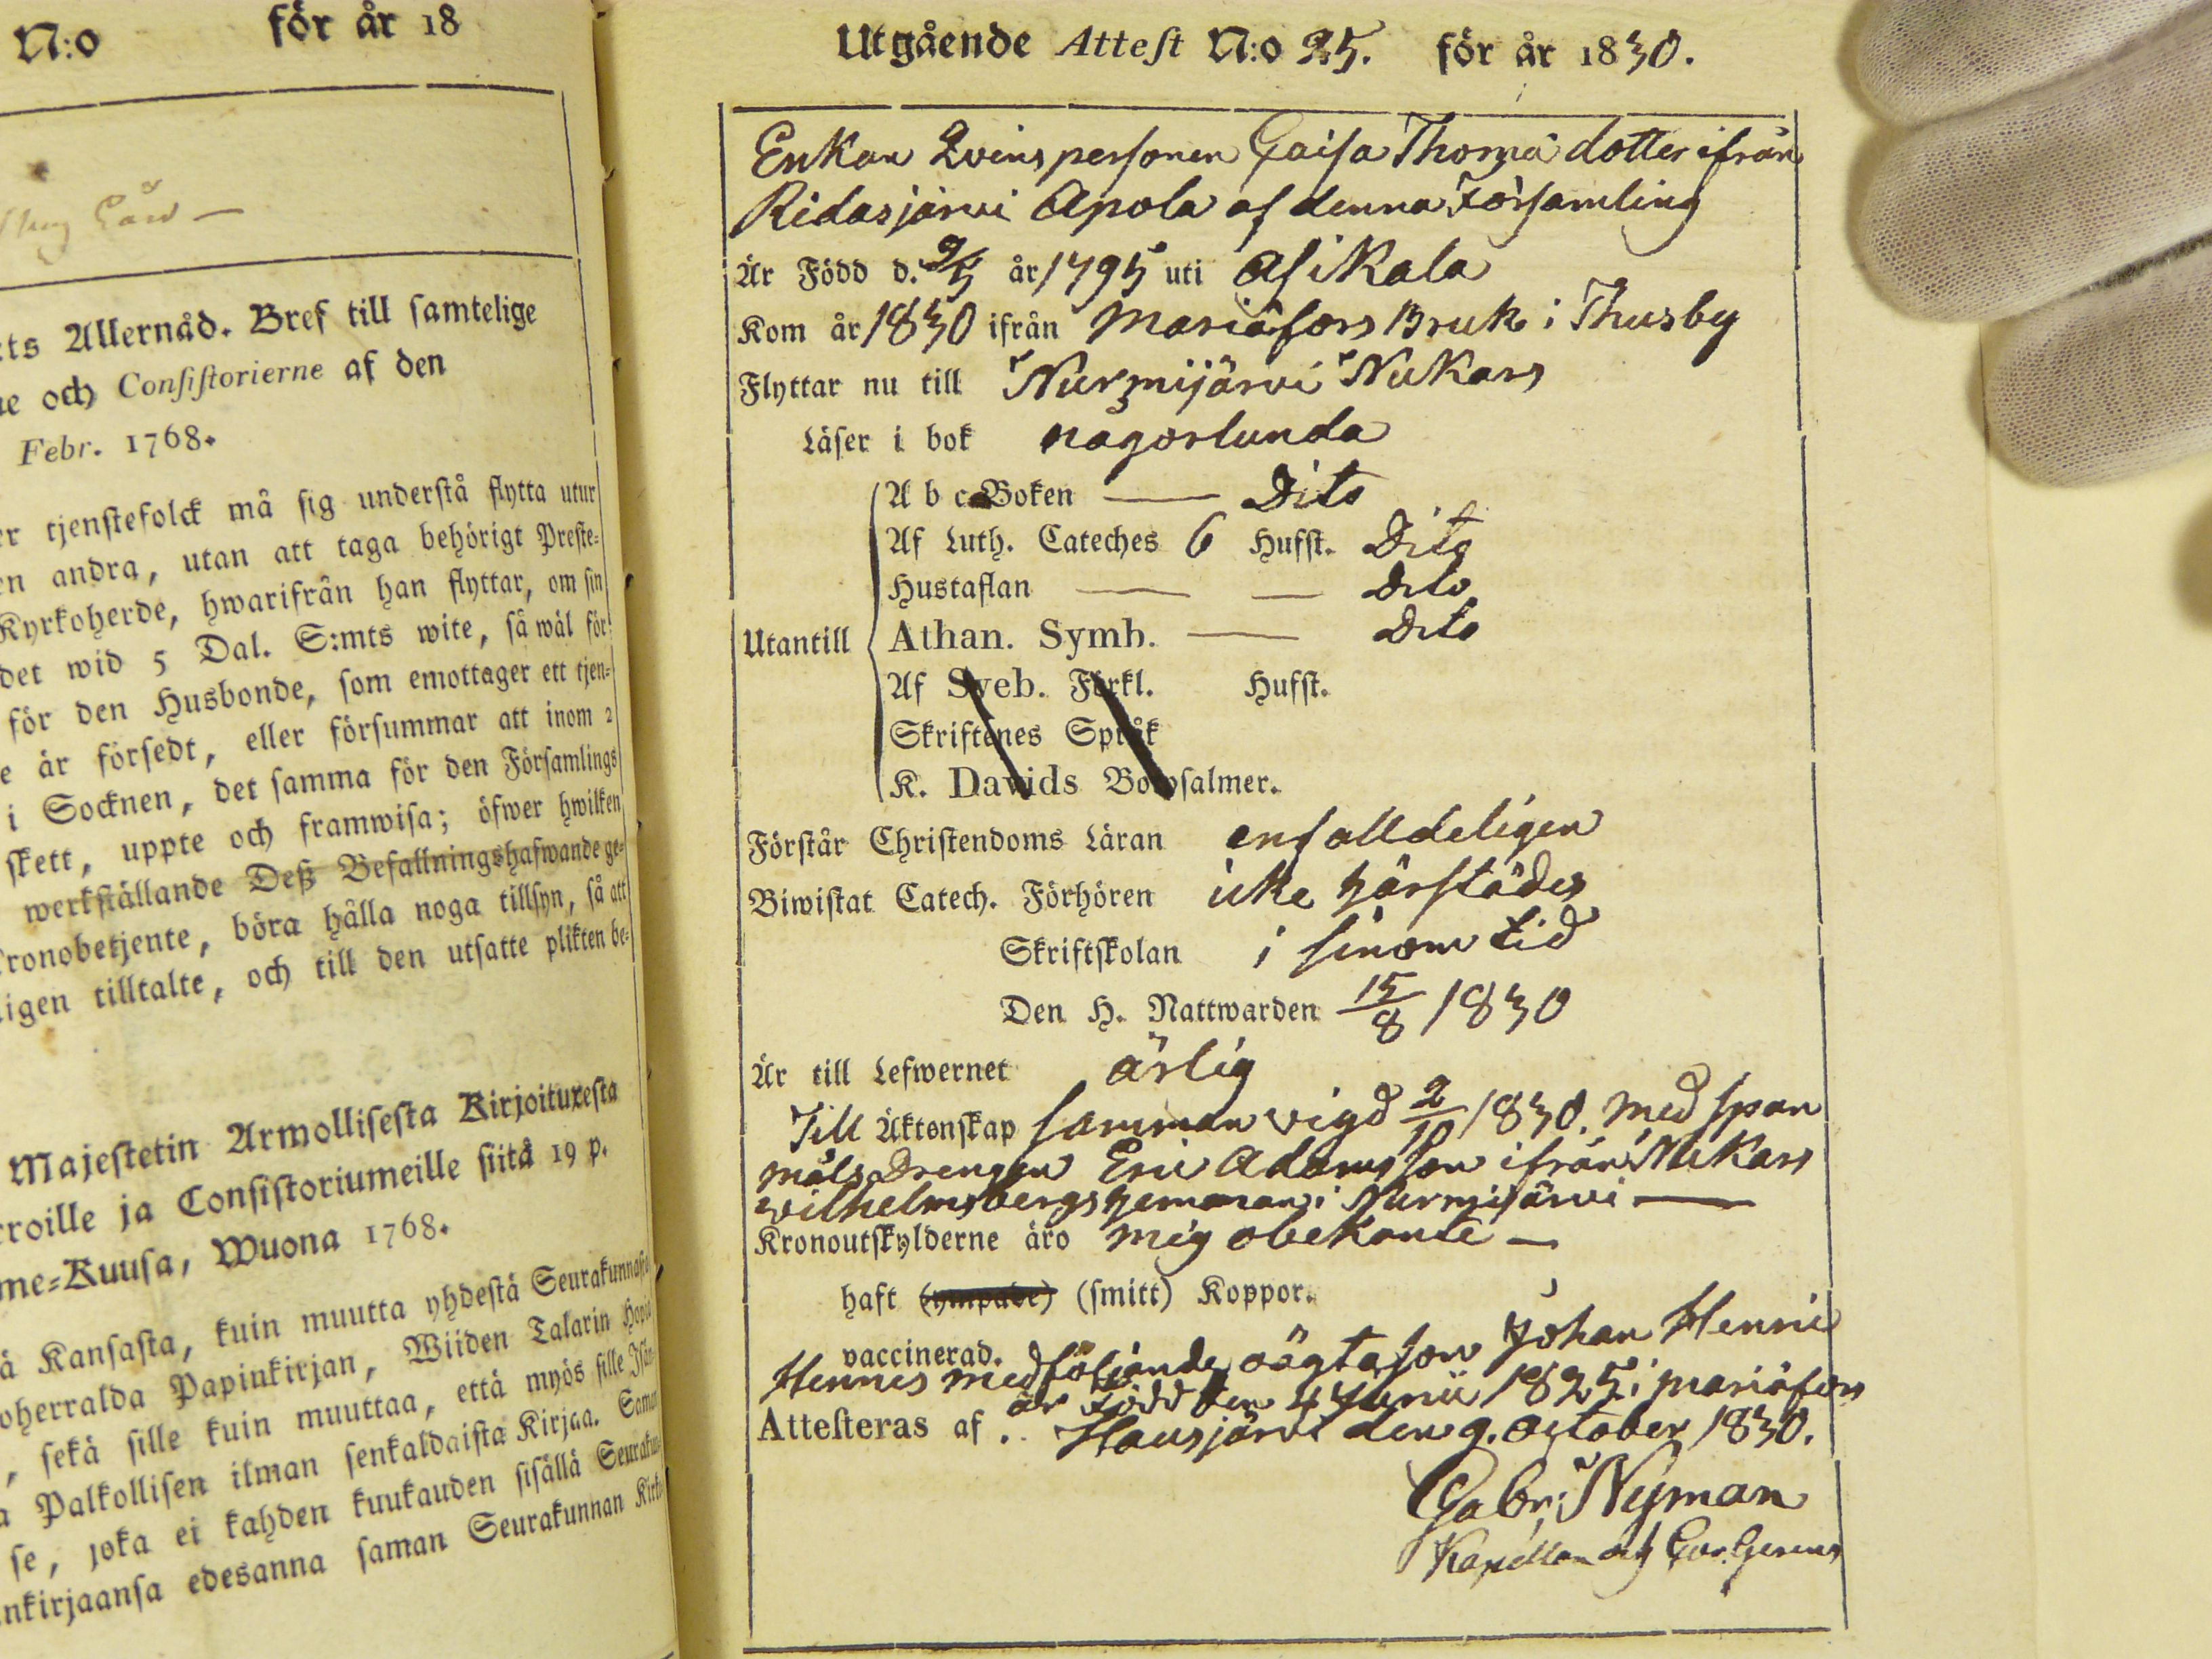 N:o för år 18
ts Allernåd. Bref till samtelige
ne och Consistorierne af den
Febr. 1768.
er tjenstefolck må sig understå flytta utur
en andra, utan att taga behörigt Preste-
Kyrkoherde, hwarifrån han flyttar, om sin
det wid 5 Dal. S:mts wite, så wäl för
för den Husbonde, som emottager ett tjen-
e är försedt, eller försummar att inom 2
i Socknen, det samma för den Församlings
skett, uppte och framwisa; öfwer hwilken
werkställande Deß Befallningshafwande ge-
Kronobetjente, böra hålla noga tillsyn, så att
ligen tilltalte, och till den utsatte plikten be-
Majestetin Armollisesta Kirjoituxesta
rroille ja Consistoriumeille siitä 19 p.
me-Kuusa, Wuona 1768.
ä Kansasta, kuin muutta yhdestä Seurakunnasta
oherralda Papinkirjan, Wiiden Talarin Hopia
, sekä sille kuin muuttaa, että myös sille Isän-
a Palkollisen ilman senkaldaista Kirjaa. Saman
se, joka ei kahden kuukauden sisällä Seurakun-
nkirjaansa edesanna saman Seurakunnan Kirko
Utgående Attest N:o 25. för år 1830.
Enkan Qvinspersonen Caisa Thomä dotter ifrån
Ridasjärvi Apola af denna Församling
Är Född d. 9/5 år 1795 uti Asikala
Kom år 1830 ifrån Mariäfors Bruk i Thusby
Flyttar nu till Nurmijärvi Nukars
Läser i bok någorlunda
A b c Boken — Dito
Af Luth. Cateches 6 Hufst. Dito
Hustaflan — — Dito
Utantill Athan. Symb. — Dito
Af Sveb. Förkl. Hufst.
Skriftenes Språk
K. Davids Botpsalmer.
Förstår Christendoms Läran enfalldeligen
Biwistat Catech. Förhören icke härstädes
Skriftskolan i sinom tid
Den H. Nattwarden 15/8 1830
Är till Lefwernet ärlig
Till Äktenskap samman vigd 2/10 1830. med span
måls Drengen Eric Adamsson ifrån Nukars
wilhelmsbergs hemman i Nurmijärvi —
Kronoutskylderne äro mig obekante —
haft (ympade) (smitt) Koppor.
vaccinerad.
Hennes medföljande oägta son Johan Henric
är född den 4 Junii 1825 i Mariäfors
Attesteras af . . Hausjärvi den 9. October 1830.
Gabr: Nyman
Kapellan